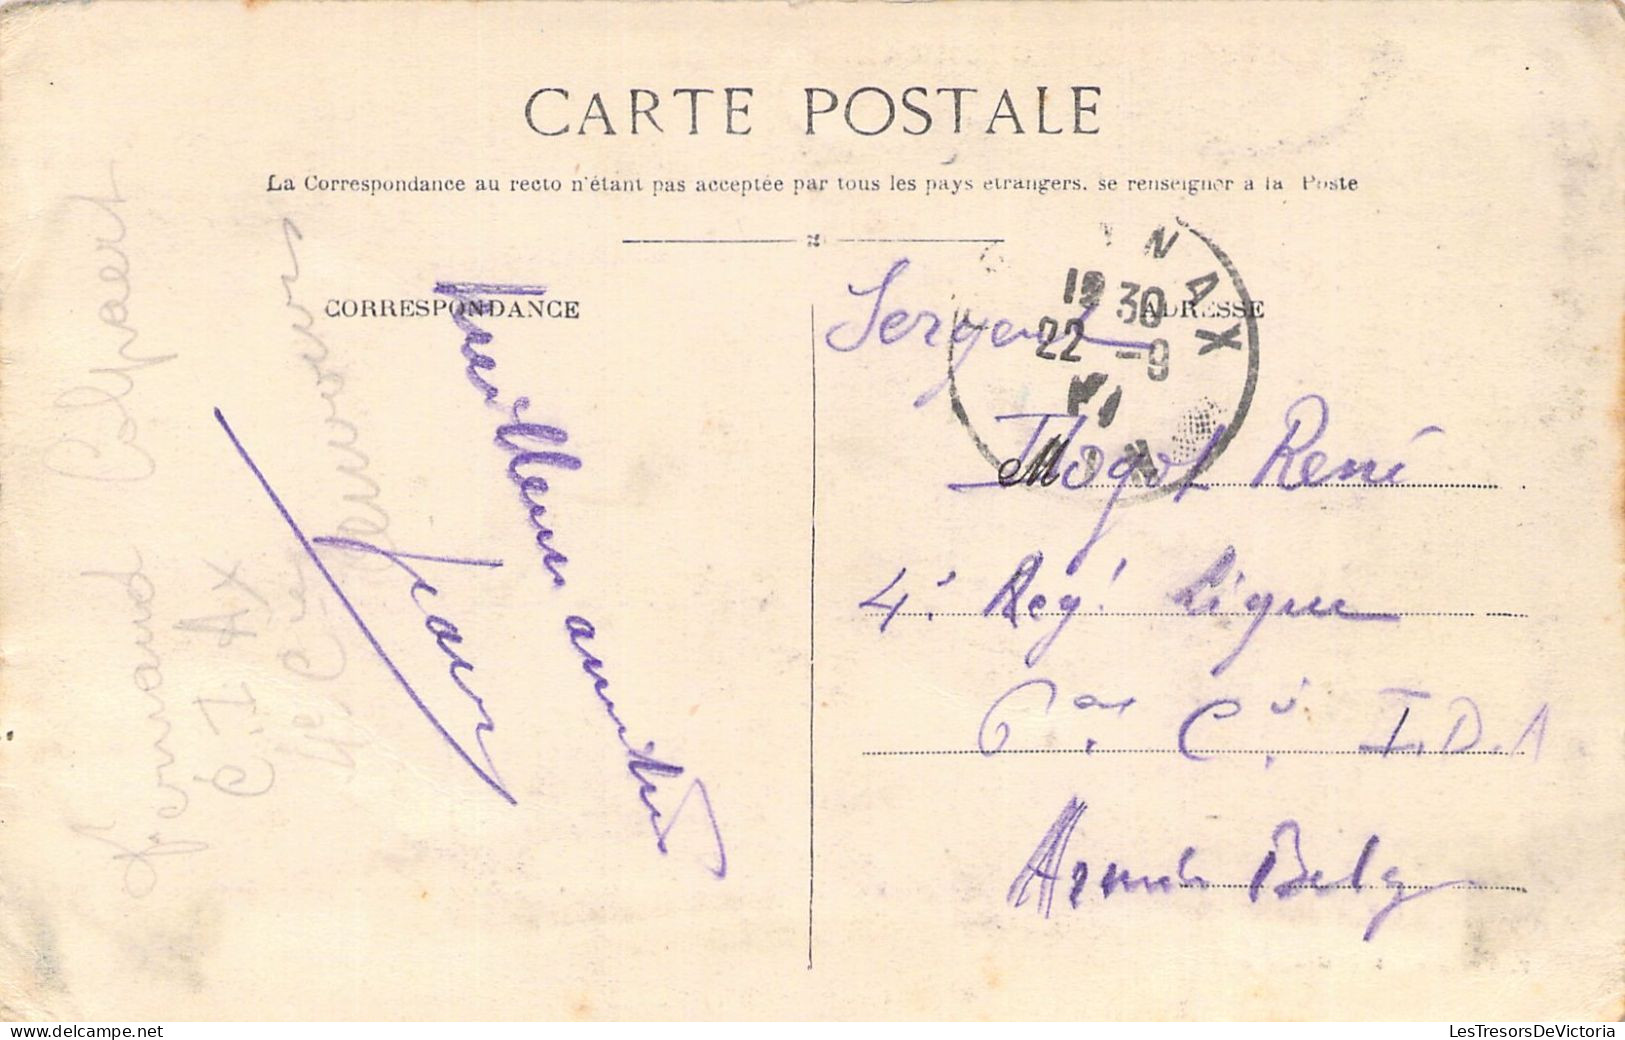 CARTE POSTALE
La Correspondance au recto n'étant pas acceptée par tous les pays étrangers, se renseigner à la Poste
CORRESPONDANCE
ADRESSE
Meilleures amitiés
Fernand Colpaert
C. I. AX
4e Cie
NAX
12 30
22 -9
Sergent
M René
4e Reg. Ligne
6me Cie I.D.A
Armée Belge
www.delcampe.net
LesTresorsDeVictoria